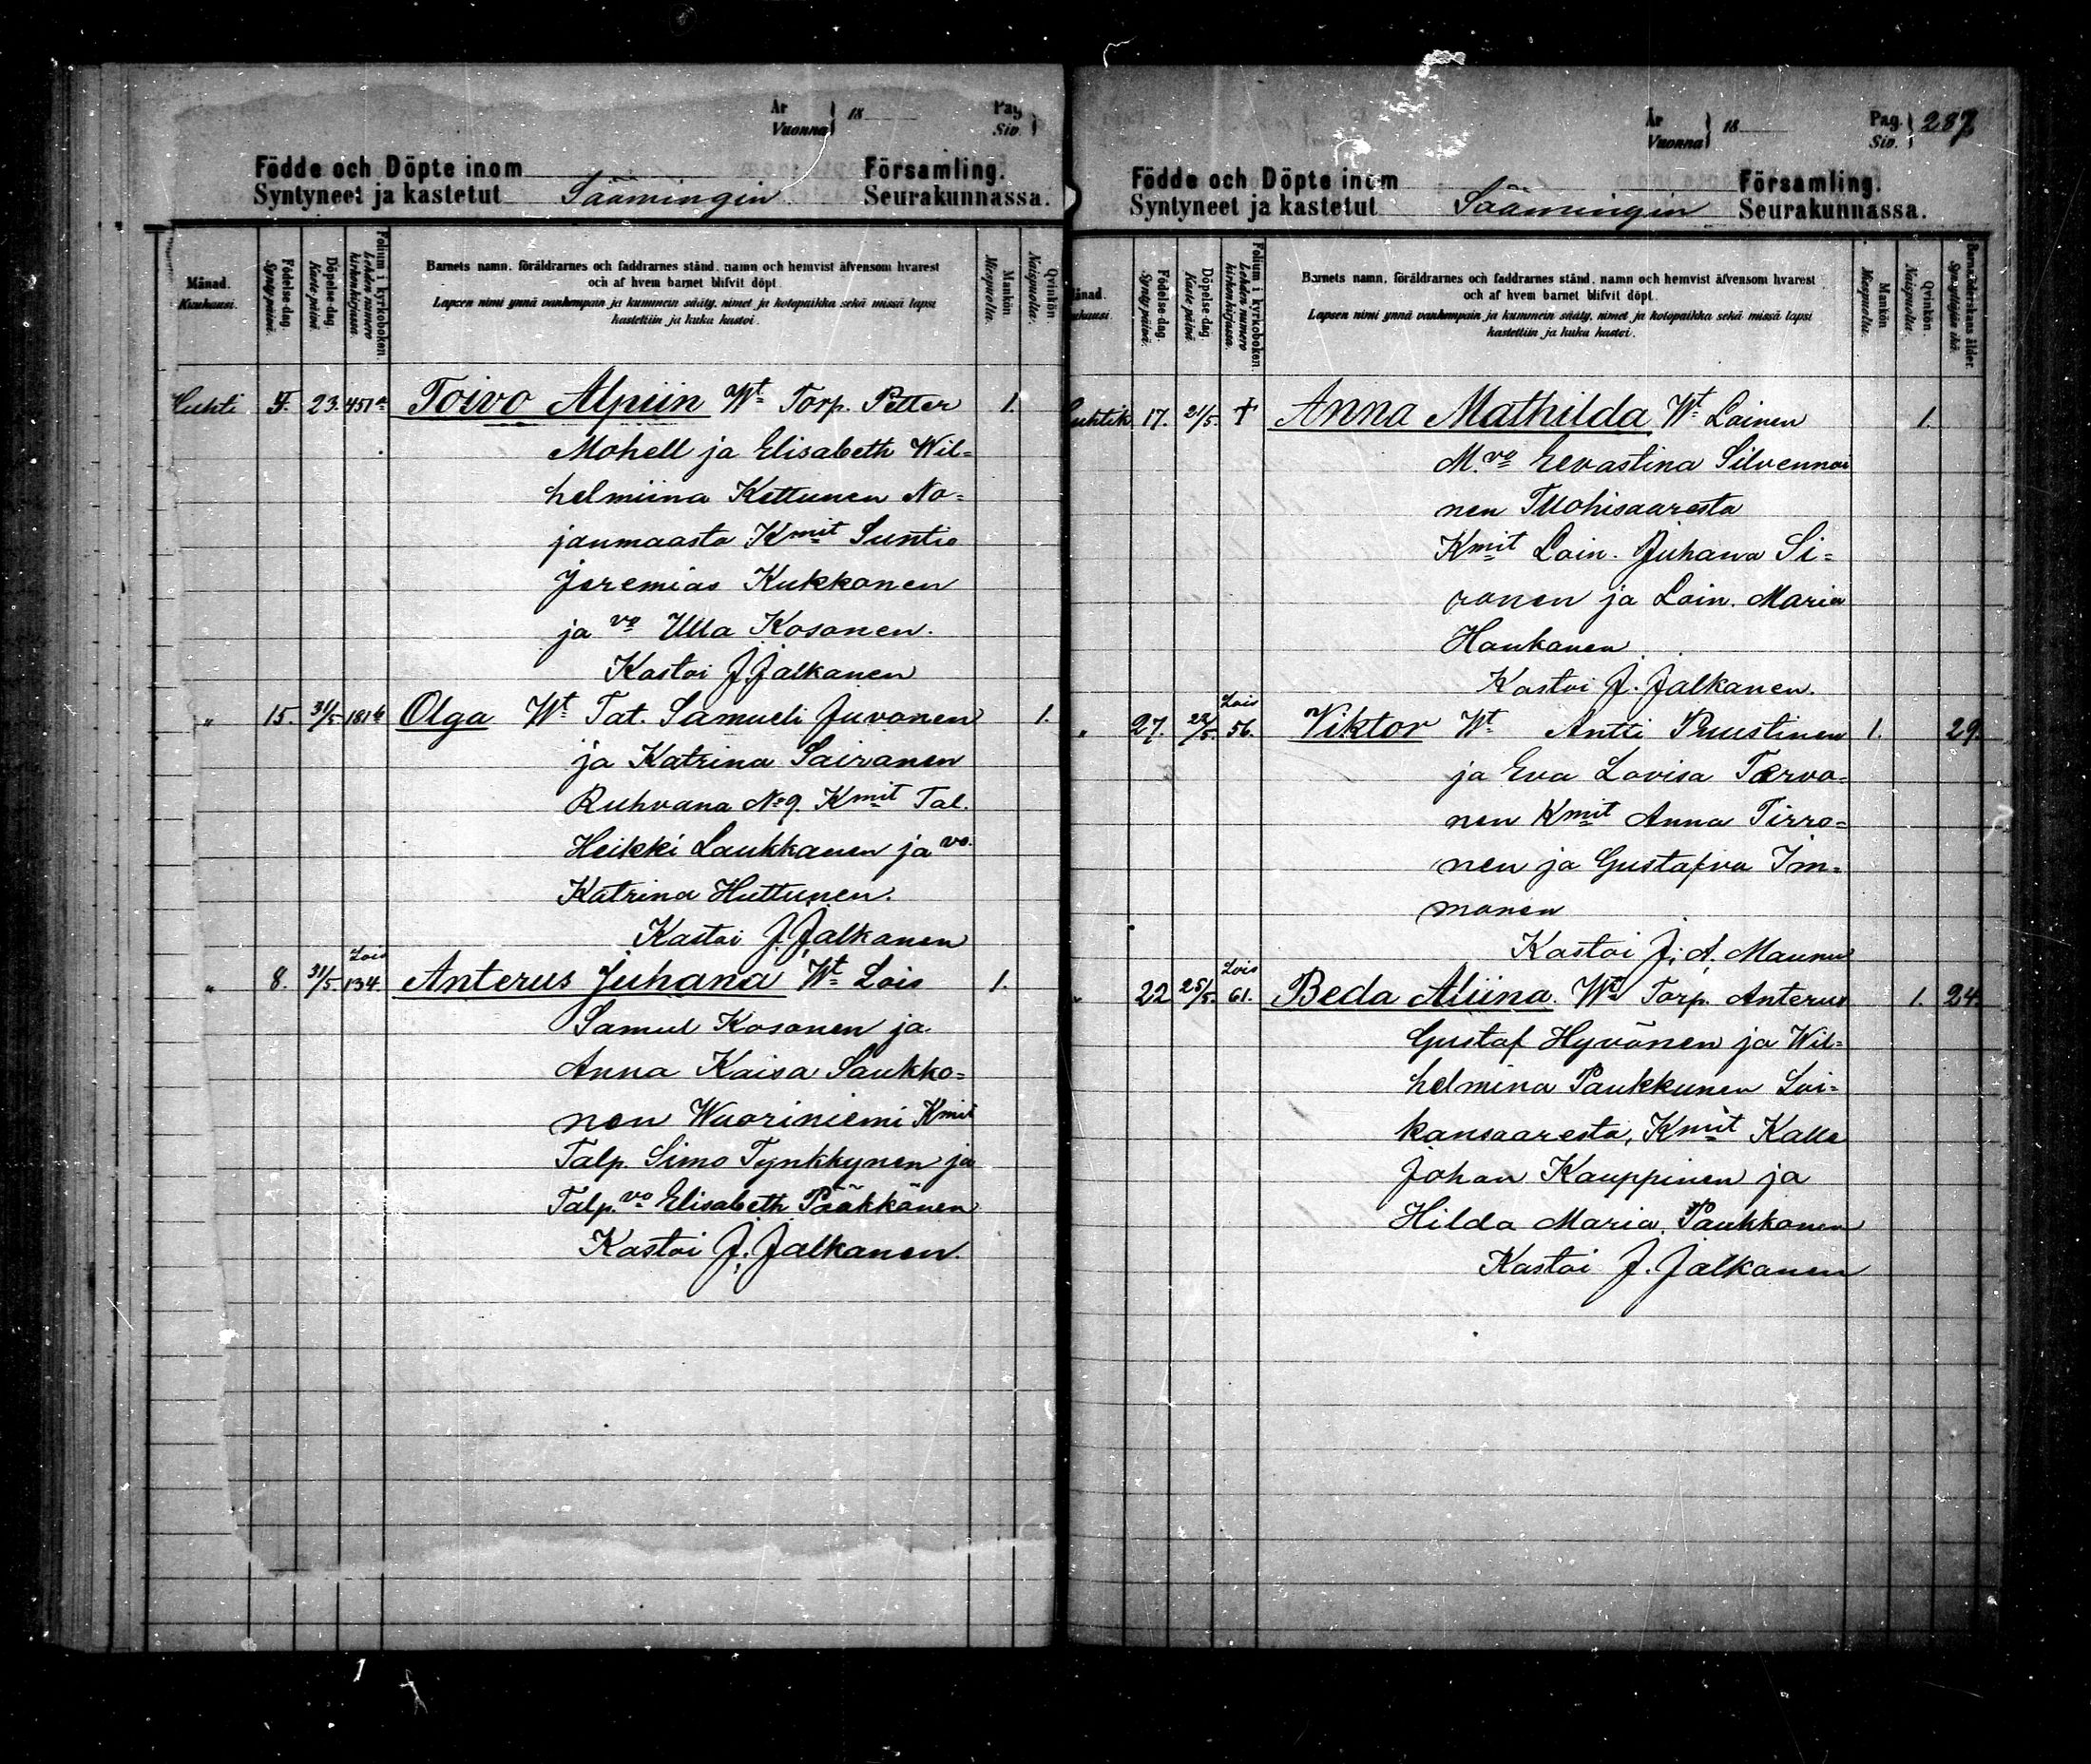 År
Vuonna } 18
Pag
Siv. }
Födde och Döpte inom Församling.
Syntyneet ja kastetut Säämingin Seurakunnassa.
Månad.
Kuukausi.
Födelse-dag.
Syntypäivä.
Döpelse-dag.
Kaste päivä.
Folium i kyrkoboken.
Lehden numero kirkonkirjassa.
Barnets namn, föräldrarnes och faddrarnes stånd, namn och hemvist äfvensom hvarest
och af hvem barnet blifvit döpt.
Lapsen nimi ynnä vanhempain ja kummein sääty, nimet ja kotopaikka sekä missä lapsi
kastettiin ja kuka kastoi.
Mankön
Miespuolia.
Qvinkön
Naispuolia.
Huhti 4. 23. 451 Toivo Alpiin Wt Torp. Petter 1.
Mohell ja Elisabeth Wil=
helmiina Kettunen No=
janmaasta Kmit Suntio
Jeremias Kukkonen
ja vo Ulla Kosonen.
Kastoi J. Jalkanen
" 15. 31/5 181 b Olga Wt Tat. Samueli Juvonen 1.
ja Katrina Sairanen
Ruhvana No 9. Kmit Tal.
Heikki Laukkanen ja vo.
Katrina Huttunen.
Kastoi J. Jalkanen
Lois
" 8. 31/5. 134. Anterus Juhana Wt Lois 1.
Samul Kosonen ja
Anna Kaisa Saukko=
nen Wuoriniemi Kmit
Talp. Simo Tynkkynen ja
Talp. vo Elisabeth Pääkkönen
Kastoi J. Jalkanen.
År
Vuonna } 18
Pag.
Siv. } 287
Födde och Döpte inom Församling.
Syntyneet ja kastetut Säämingin Seurakunnassa.
ånad.
ukausi.
Födelse-dag.
Syntypäivä.
Döpelse-dag.
Kaste päivä.
Folium i kyrkoboken.
Lehden numero kirkonkirjassa.
Barnets namn, föräldrarnes och faddrarnes stånd, namn och hemvist äfvensom hvarest
och af hvem barnet blifvit döpt.
Lapsen nimi ynnä vanhempain ja kummein sääty, nimet ja kotopaikka sekä missä lapsi
kastettiin ja kuka kastoi.
Mankön
Miespuolia.
Qvinkön
Naispuolia.
Barnaföderskans ålder.
Synnyttäjän ikä.
Huhtik. 17. 21/5. † Anna Mathilda Wt Loinen 1.
M. vo Eevastina Silvennoi
nen Tuohisaaresta
Kmit Loin. Juhana Si=
ronen ja Loin. Maria
Haukanen
Kastoi J. Jalkanen.
Lois
" 27. 22/5. 56. Viktor Wt Antti Puustinen 1. 29.
ja Eva Lovisa Tarva=
nen Kmit Anna Tirro=
nen ja Gustafva Im=
monen
Kastoi J. A. Maunu
Lois
" 22 25/5. 61. Beda Aliina. Wt Torp. Anterus 1. 24.
Gustaf Hyvönen ja Wil=
helmina Paukkunen Loi=
kansaaresta, Kmit Kalle
Johan Kauppinen ja
Hilda Maria Paukkonen
Kastoi J. Jalkanen